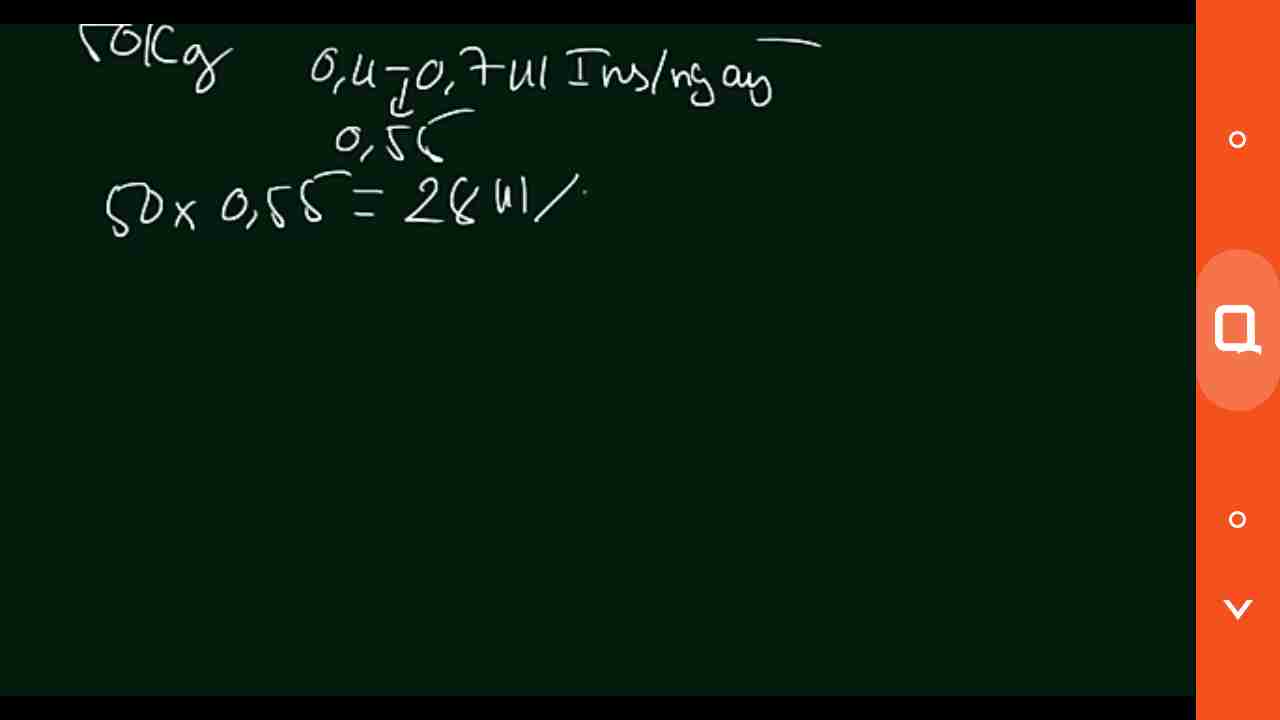 50Kg 0,4-0,7UI Ins/ngay
0,55
50 x 0,55 = 28 UI/